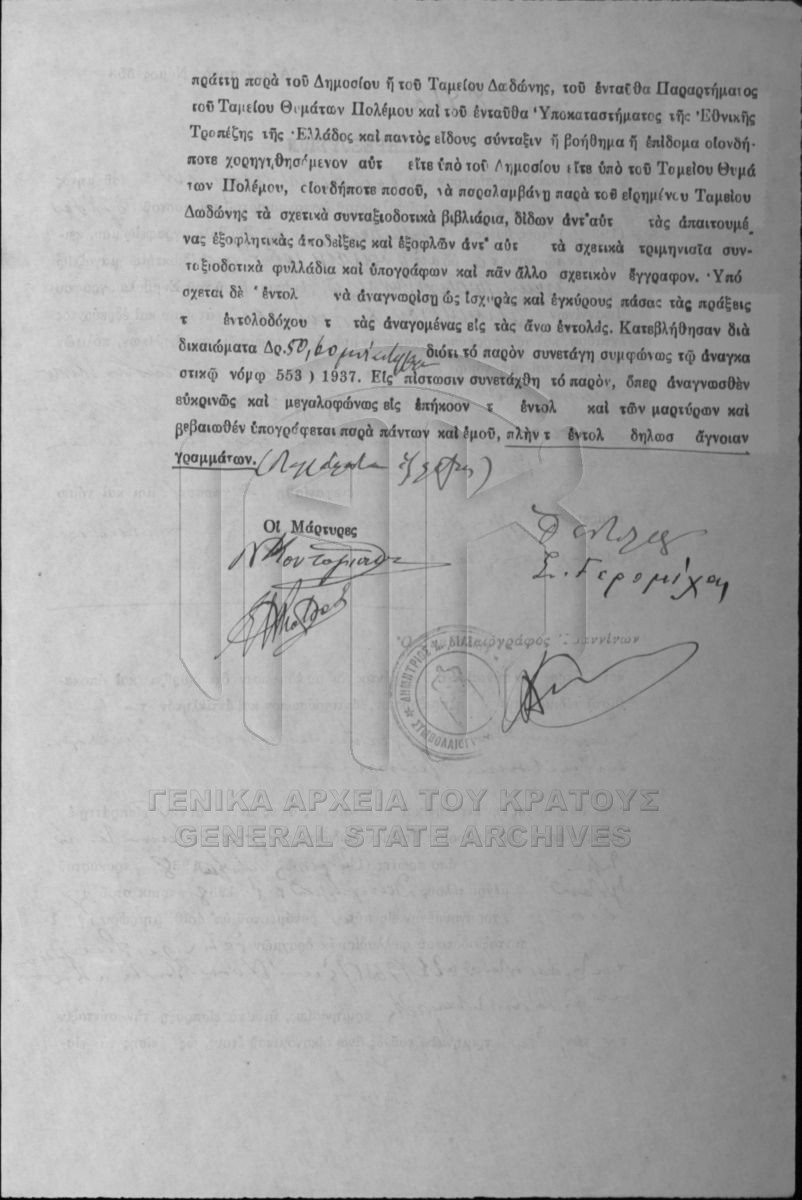 πράττῃ παρὰ τοῦ Δημοσίου ἢ τοῦ Ταμείου Δαδώνης, τοῦ ἐνταῦθα Παραρτήματος
τοῦ Ταμείου Θυμάτων Πολέμου καὶ τοῦ ἐνταῦθα Ὑποκαταστήματος τῆς Ἐθνικῆς
Τραπέζης τῆς Ἑλλάδος καὶ παντὸς εἴδους σύνταξιν ἢ βοήθημα ἢ ἐπίδομα οἱονδή-
ποτε χορηγηθησόμενον αὐτ εἴτε ὑπὸ τοῦ Δημοσίου εἴτε ὑπὸ τοῦ Ταμείου Θυμά
των Πολέμου, οἱουδήποτε ποσοῦ, νὰ παραλαμβάνῃ παρὰ τοῦ εἰρημένου Ταμείου
Δωδώνης τὰ σχετικὰ συνταξιοδοτικὰ βιβλιάρια, δίδων ἀντ' αὐτ τὰς ἀπαιτουμέ
νας ἐξοφλητικὰς ἀποδείξεις καὶ ἐξοφλῶν ἀντ' αὐτ τὰ σχετικὰ τριμηνιαῖα συν-
ταξιοδοτικὰ φυλλάδια καὶ ὑπογράφων καὶ πᾶν ἄλλο σχετικὸν ἔγγραφον. Ὑπό
σχεται δὲ ἐντολ νὰ ἀναγνωρίσῃ ὡς ἰσχυρὰς καὶ ἐγκύρους πάσας τὰς πράξεις
τ ἐντολοδόχου τ τὰς ἀναγομένας εἰς τὰς ἄνω ἐντολάς. Κατεβλήθησαν διὰ
δικαιώματα Δρ. 50, διότι τὸ παρὸν συνετάγη συμφώνως τῷ ἀναγκα
στικῷ νόμῳ 553) 1937. Εἰς πίστωσιν συνετάχθη τὸ παρόν, ὅπερ ἀναγνωσθὲν
εὐκρινῶς καὶ μεγαλοφώνως εἰς ἐπήκοον τ ἐντολ καὶ τῶν μαρτύρων καὶ
βεβαιωθὲν ὑπογράφεται παρὰ πάντων καὶ ἐμοῦ, πλὴν τ ἐντολ δηλωσ ἄγνοιαν
γραμμάτων.
Οἱ Μάρτυρες
Σ. Γερομίχα
Συμβολαιογράφος Ἰωαννίνων
ΔΗΜΗΤΡΙΟΣ
ΣΥΜΒΟΛΑΙΟΓΡ
ΓΕΝΙΚΑ ΑΡΧΕΙΑ ΤΟΥ ΚΡΑΤΟΥΣ
GENERAL STATE ARCHIVES